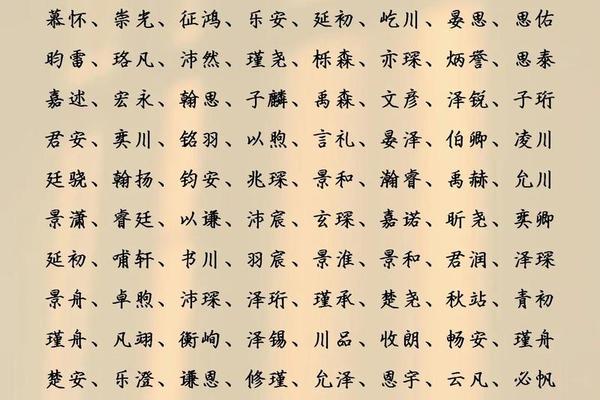 慕怀、崇光、征鸿、乐安、延初、屹川、晏思、思佑
昀雷、珞凡、沛然、瑾尧、栎森、亦琛、炳誉、思泰
嘉述、宏永、翰思、子麟、禹森、文彦、泽锐、子珩
君安、奕川、铭羽、以煦、言礼、晏泽、伯卿、凌川
廷骁、翰扬、钧安、兆琛、景和、瀚睿、禹赫、允川
景潇、睿廷、以谦、沛宸、玄琛、嘉诺、昕尧、奕卿
延初、哺轩、书川、羽宸、景淮、景和、君润、泽琛
景舟、卓煦、沛琛、泽珩、瑾承、楚尧、秋站、青初
瑾舟、凡翊、衡峋、泽锡、川品、收朗、畅安、瑾舟
楚安、乐澄、谦恩、修瑾、允泽、恩宇、云凡、必帆